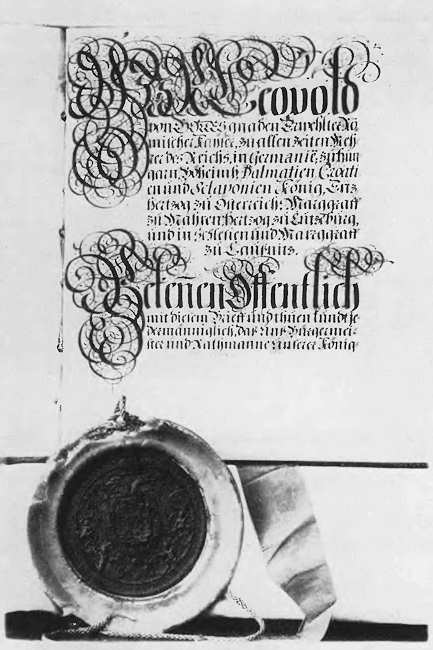 Wir Leopold
von GOTTES gnaden Erwehlter Rö-
mischer Kayser, zu allen Zeiten Meh-
rer des Reichs, in Germanie, zu Hun-
garn, Böheimb, Dalmatien, Croati-
en und Sclavonien König, Ertz-
hertzog zu Österreich, Marggraff
zu Mähren, Hertzog zu Lützeburg,
und in Schlesien und Marggraff
zu Laußnitz.
Bekennen Öffentlich
mit diesem Brieff und thuen kundt je-
dermänniglich, daß Uns Bürgermei-
ster und Rathmanne Unserer König-